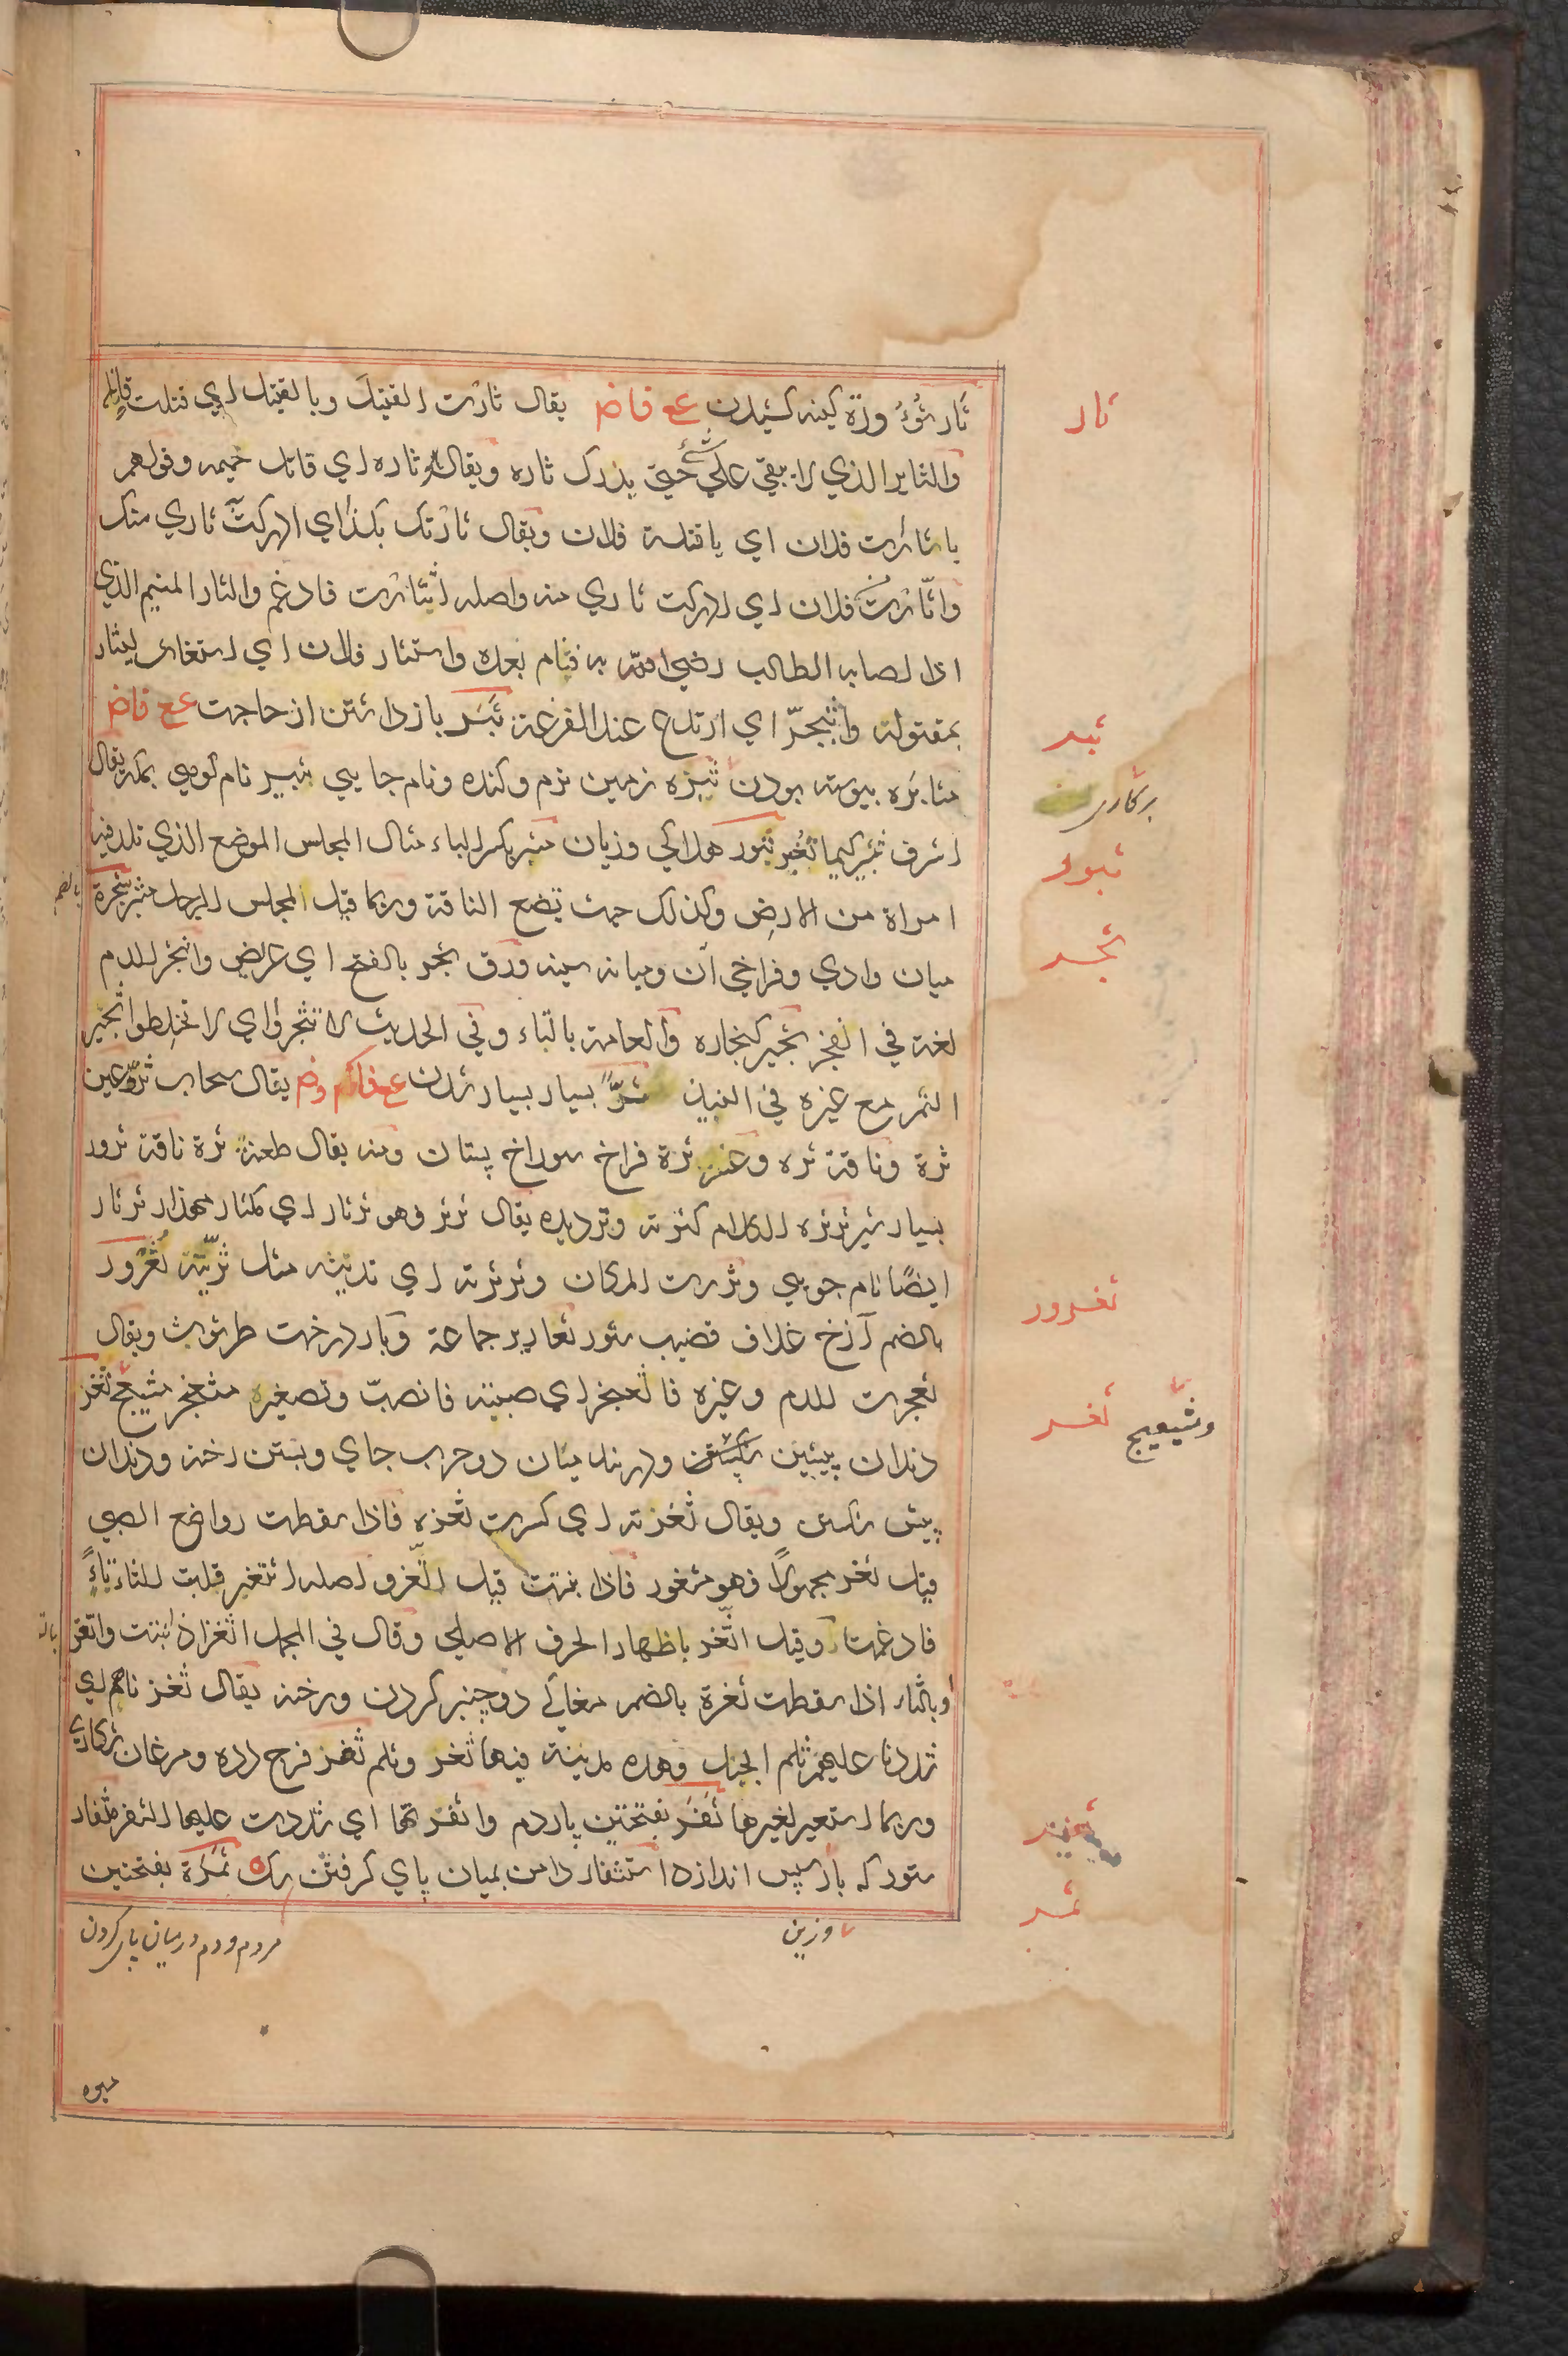 ثأر ثؤرة کینه کشیدن عع فاض یقال ثارت القتیل وبالقتیل اي قتلت قاتله
والثایر الذي لا یبقي علی شئ حتی یدرك ثاره ویقال هو ثاره اي قاتل حمیمه وقولهم
یا ثارت فلان اي یا قتلة فلان ویقال ثارتك بکذا اي ادرکت ثاري منك
واثّارت فلان اي ادرکت ثاري منه واصله اثتارت فادغم والثار المنیم الذي
اذا اصابه الطالب رضي به فنام بعده واستثار فلان اي استغاث لیثار
بمقتوله واثبجرّ اي ارتدع عند الفزعة ثَبَر باز داشتن از حاجت عع فاض
مثابره پیوسته بودن ثبره زمین نرم وکنده ونام جایی ثبیر نام کوهی بمکه یقال
اشرف ثبیر کیما نغیر ثبور هلاکي وزیان مثبر بکسر الباء مثال المجلس الموضع الذي تلد فیها
امراة من الارض وکذلك حیث تضع الناقة وربما قیل لمجلس الرجل مثبر ثجرة
میان وادي وفراخي آن ومیانه سینه ورق ثجر بالفتح اي عریض وانثجر الدم
لغة في انفجر ثجیر کنجاره والعامة بالتاء وفي الحدیث لا تثجروا اي لا تخلطوا ثجیر
التمر مع غیره في النبیذ ثرٌّ بسیار بسیار شدن عع فاکم وض یقال سحاب ثر وعین
ثرة وناقة ثره وعنز ثرة فراخ سوراخ پستان ومنه یقال طعنة ثرة ناقة ثرور
بسیار شیر ثرثره الکلام کثرته وتردیده یقال ثرثر فهو ثرثار اي مکثار مهذار ثرثار
ایضًا نام جویي وثررت المکان وثرثرته اي ندیته مثل ثرّیته ثُعْرُور
بالضم آزخ غلاف قضیب ستور ثعاریر جماعة وبار درخت طرثوث ویقال
ثعجرت الدم وغیره فاثعنجر اي صببته فانصبّ وتصغیره مثعنجر مثیعج ثغر
دندان پیشین شکستن ودربند میان دو حرب جاي وبستن رخنه ودندان
پیش شکستن ویقال ثغرته اي کسرت ثغره فاذا سقطت رواضع الصبي
قیل ثغر مجهولًا فهو مثغور فاذا نبتت قیل اتّغر واصله اثتغر قلبت الثاء تاءً
فادغمتا وقیل اثّغر باظهار الحرف الاصلي وقال في المجمل اثغر اذا نبتت واتغر
وبالثاء اذا سقطت ثغرة بالضم مغاکي دو چنبر کردن ورخنه یقال ثغرناهم اي
سددنا علیهم ثلم الجبل وهذه مدینة فیها ثغر وثلم ثفر فرج دده ومرغان شکاري
وربما استعیر لغیرها ثَفَر بفتحتین پاردم واثفرتها اي شددت علیها الثفر مثفار
ستور که باز پس اندازد استثفار دامن بمیان پاي گرفتن سگ ثَمَرَة بفتحتین
ثار
ثبر
ثبور
ثجر
ثعرور
وثعیعیج ثغر
ثمر
بالضم
وزین
مردم ودم درمیان پای کردن
میوه